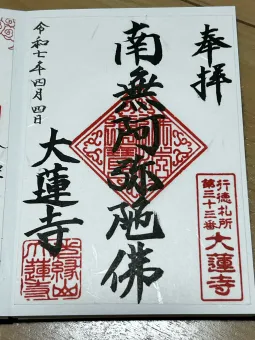 奉拝
南無阿弥陀佛
大蓮寺
令和七年四月四日
行徳札所
第三十三番
大蓮寺
大蓮寺